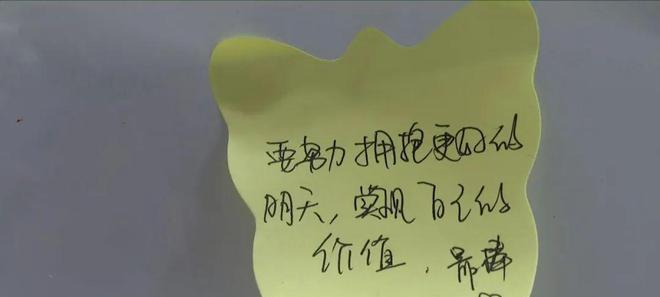 要努力拥抱更好的
明天，实现自己的
价值.